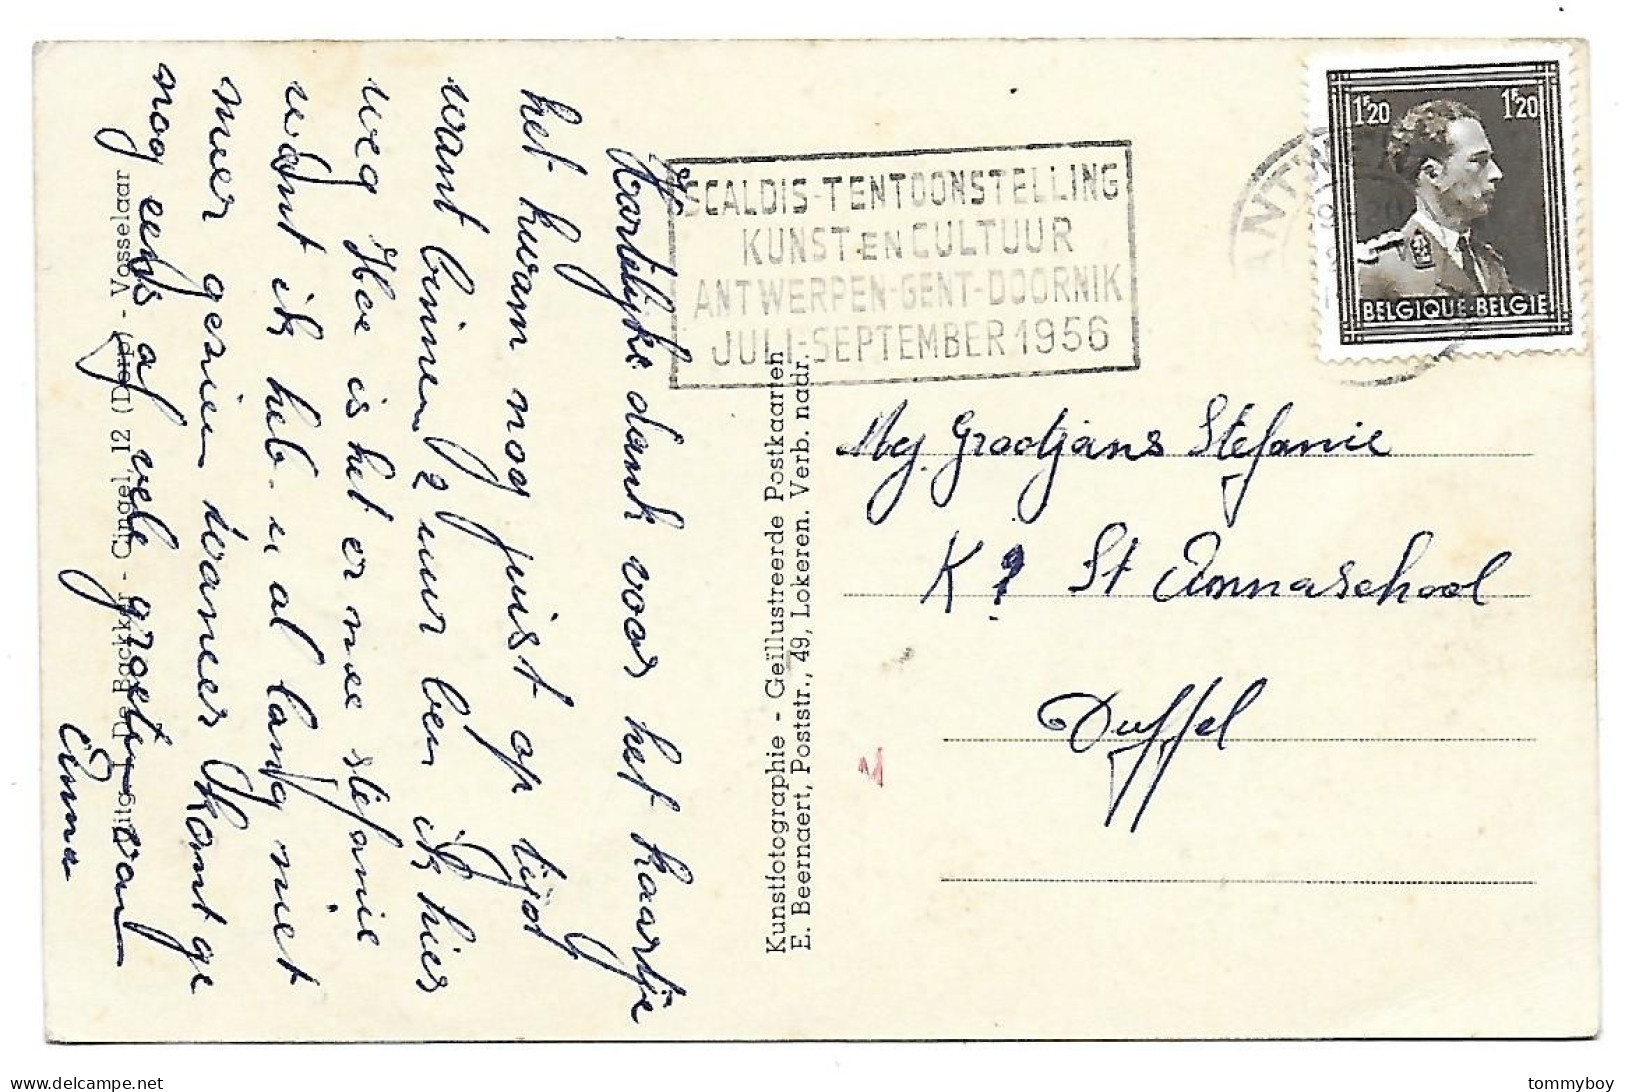 SCALDIS-TENTOONSTELLING
KUNST EN CULTUUR
ANTWERPEN-GENT-DOORNIK
JULI-SEPTEMBER 1956
1F20 1F20
BELGIQUE-BELGIE
Mej. Grootjans Stefanie
K St Annaschool
Duffel
Hartelijke dank voor het kaartje
het kwam nog juist op tijd
want binnen 2 uur ben ik hier
weg Hoe is het er mee stefanie
want ik heb u al lang niet
meer gezien wanneer komt ge
nog eens af vele groeten van
Emma
Kunstfotographie - Geïllustreerde Postkaarten
E. Beernaert, Poststr., 49, Lokeren. Verb. nadr.
Uitg. De Backker - Cingel, 12 (Dorp) - Vosselaar
delcampe.net
tommyboy